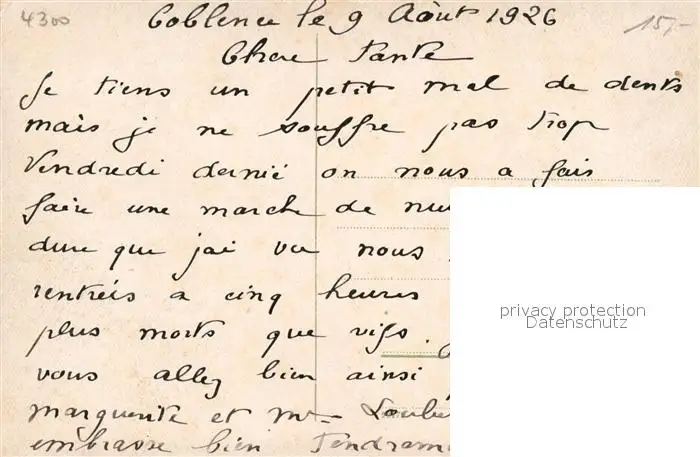 4300
15,-
Coblence le 9 Aôut 1926
Chere Tante
Je tiens un petit mal de dents
mais je ne souffre pas trop
Vendredi dernié on nous a fais
faire une marche de nu
dure que jai vu nous
rentrés a cinq heures
plus morts que vifs.
vous allez bien ainsi
marguerite et mme Loubé
embrasse bien Tendrem
privacy protection
Datenschutz